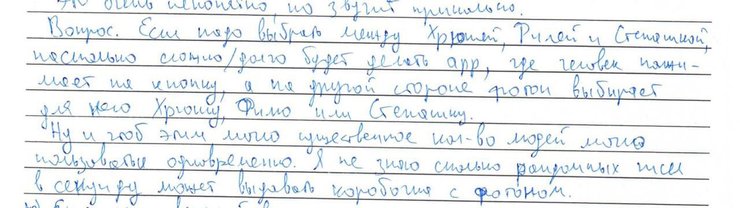 Это очень непонятно, но звучит прикольно.
Вопрос. Если надо выбрать между Хрюшей, Филей и Степашкой,
насколько сложно/долго будет делать app, где человек нажи-
мает на кнопку, а на другой стороне фотон выбирает
для него Хрюшу, Филю или Степашку.
Ну и чтоб этим могло существенное кол-во людей могло
пользоваться одновременно. Я не знаю сколько рандомных чисел
в секунду может выдавать коробочка с фотоном.